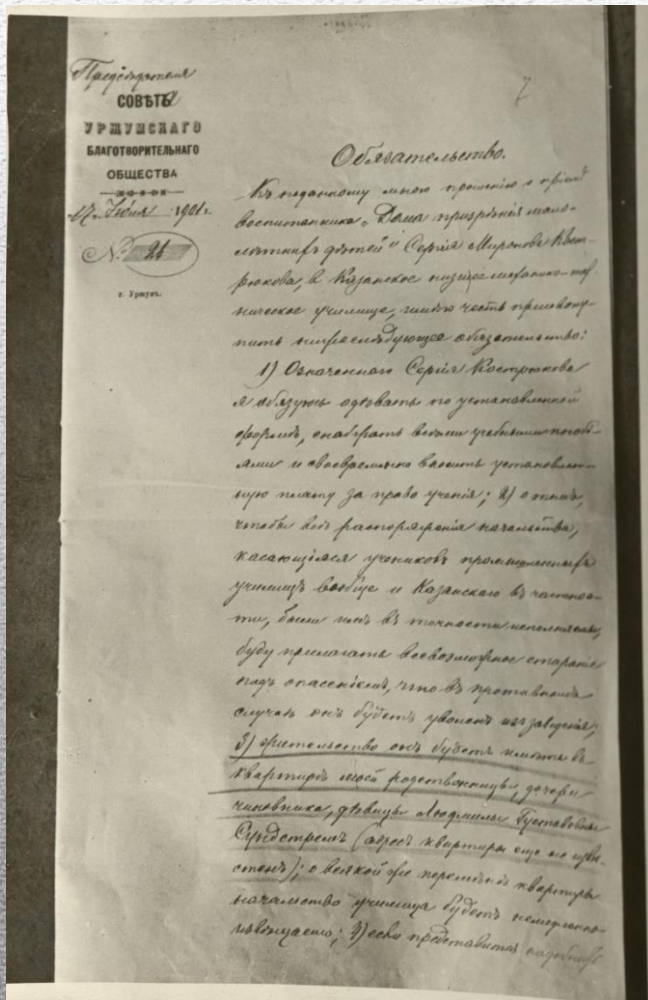 Председателя
СОВѢТА
УРЖУМСКАГО
БЛАГОТВОРИТЕЛЬНАГО
ОБЩЕСТВА
17 Іюля 1901 г.
№ 21
г. Уржумъ.
7
Обязательство.
Къ поданному мною прошенію о пріемѣ
воспитанника „Дома призрѣнія мало-
лѣтнихъ дѣтей" Сергѣя Миронова Кост-
рикова, въ Казанское низшее механико-тех
ническое училище, имѣю честь присовоку-
пить нижеслѣдующее обязательство:
1) Означеннаго Сергѣя Кострикова
я обязуюсь одѣвать по установленной
формѣ, снабжать всѣми учебными пособі-
ями и своевременно вносить установлен-
ную плату за право ученія; 2) о томъ,
чтобы всѣ распоряженія начальства,
касающіяся учениковъ промышленныхъ
училищъ вообще и Казанскаго въ частнос-
ти, были имъ въ точности исполняемы
буду прилагать всевозможное стараніе
подъ опасеніемъ, что въ противномъ
случаѣ онъ будетъ уволенъ изъ заведенія;
3) жительство онъ будетъ имѣть въ
квартирѣ моей родственницы, дочери
чиновника, дѣвицы Людмилы Густавовны
Сундстремъ (адресъ квартиры еще не извѣ-
стенъ); о всякой же перемѣнѣ квартиры
начальство училища будетъ немедленно
извѣщаемо; 4) если представится надобность